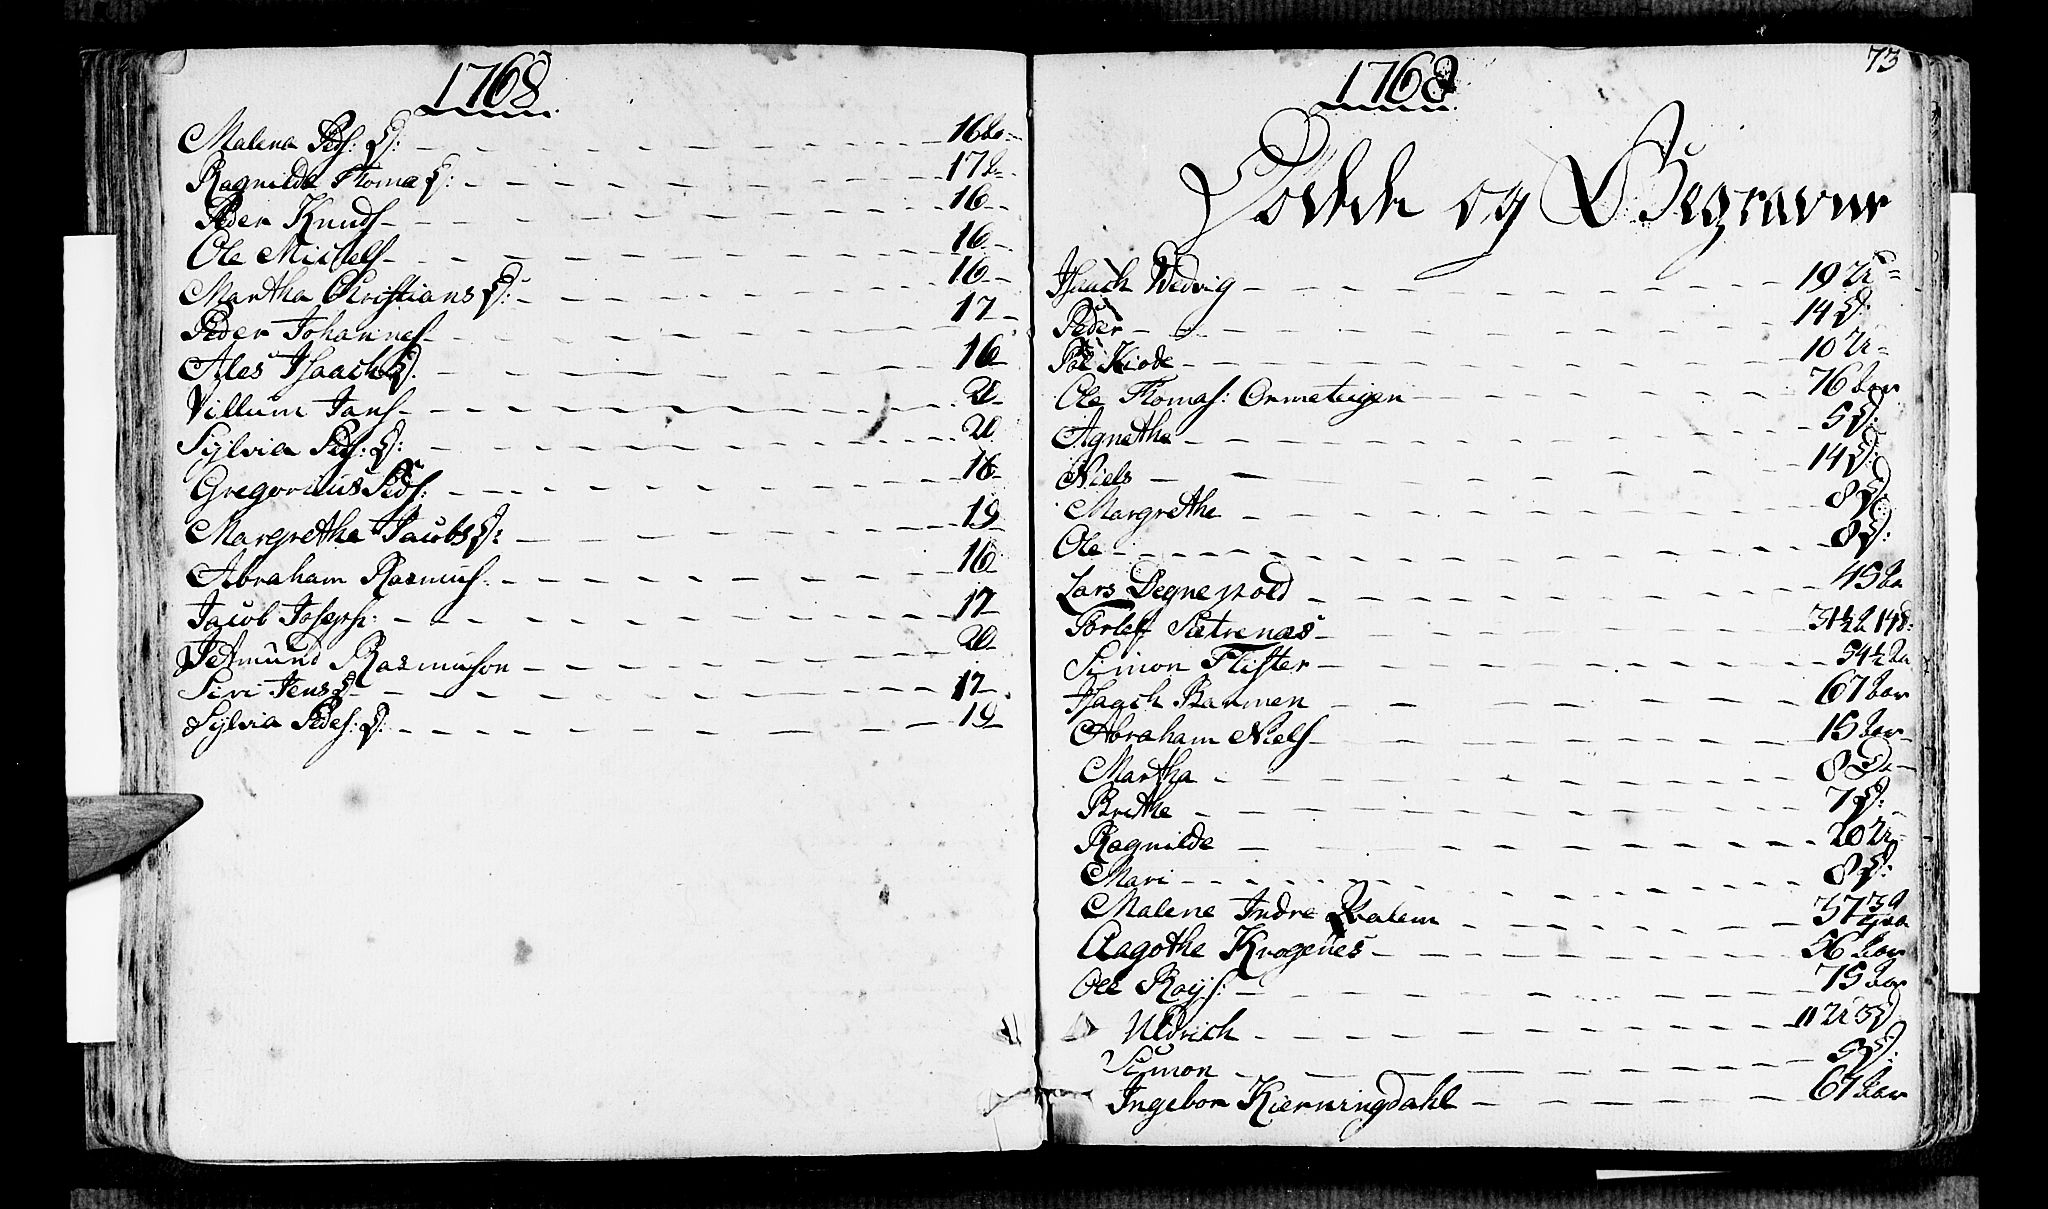 1768
Malena Peds: D: 16 Aar
Ragnilde Thomæ D: 17 Aar
Peder Knuds 16
Ole Michels 16
Martha Christians D: 16
Peder Johannes 17
Ales Isaachs D: 16
Villum Jans 20
Sylvia Peds: D: 20
Gregorius Peds: 16
Margrethe Jacobs D: 19
Abraham Rasmus: 16
Jacob Joseph: 17
Asmund Rasmuson 20
Siri Jens D 17
Sylvia Peds: D: 19
73
1768
Døde og Begravne
Isaach Hedvig 19 U
Peder 14 D:
Pæl Kiode 10 U
Ole Thomas: Ormeteigen 76 Aar
Agnethe 5 D:
Niels 14 D:
Margrethe 8 D:
Ole 8 D:
Lars Degnepold 45 Aar
Torlef Sætrenæs 31½ A 14 D:
Simon Flister 54½ Aar
Isaach Barmen 67 Aar
Abraham Niels 15 Aar
Martha 8 D
Brithe 7 D:
Ragnilde 20 U
Mari 8 D:
Malene Indre 37
Aagothe Krogenes 56 Aar
Ole Roys: 75 Aar
Uldrich 11 U 3 D
Simon 3 D:
Ingebor Kierningdahl 67 Aar